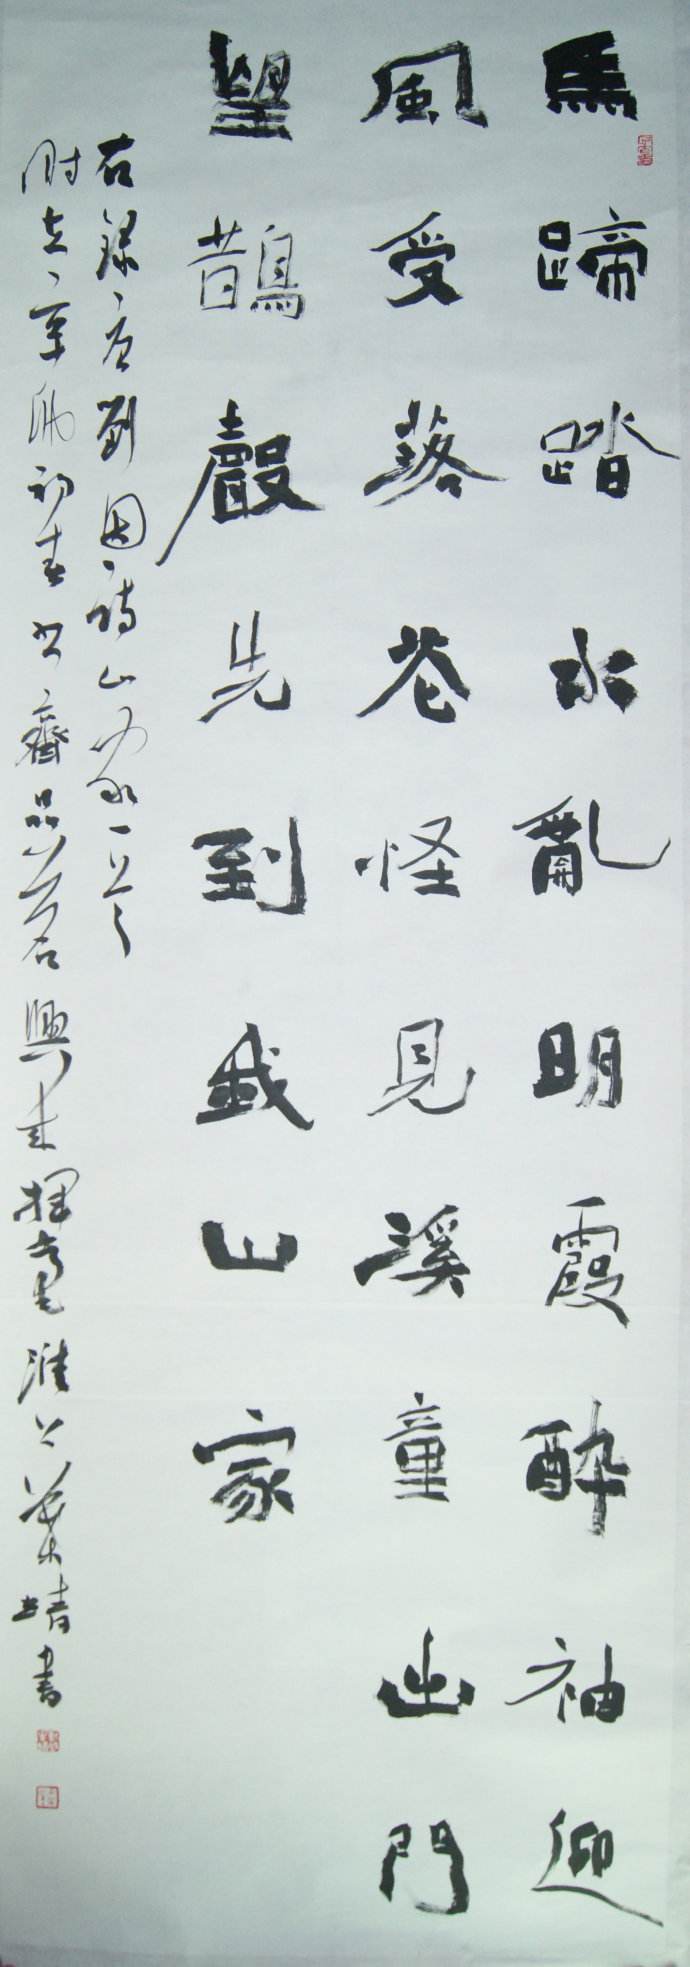 馬蹄踏水亂明霞醉袖迎
風受落花怪見溪童出門
望鵲聲先到我山家
右錄元劉因詩山家一首
時在辛卯初春書齋品茗興來揮毫淮上葉靖書